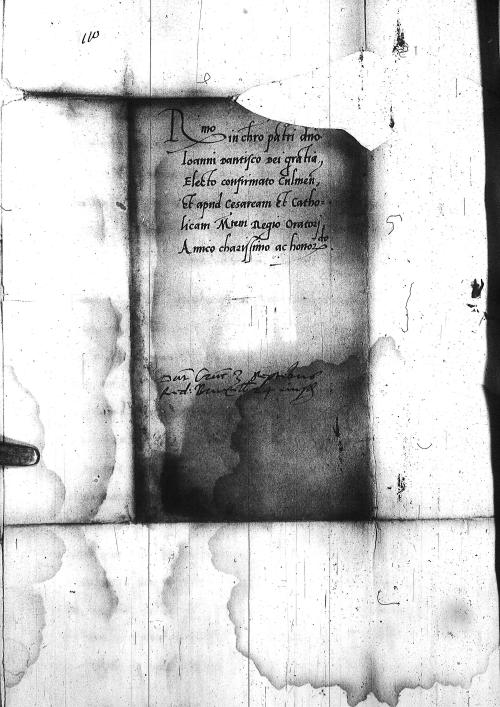 110
Rmo in chro patri dno
Ioanni Dantisco Dei gratia,
Electo confirmato Culmen,
Et apud Cesaream Et Catho-
licam Mtem Regio Oratori
Amico charissimo ac honordo.